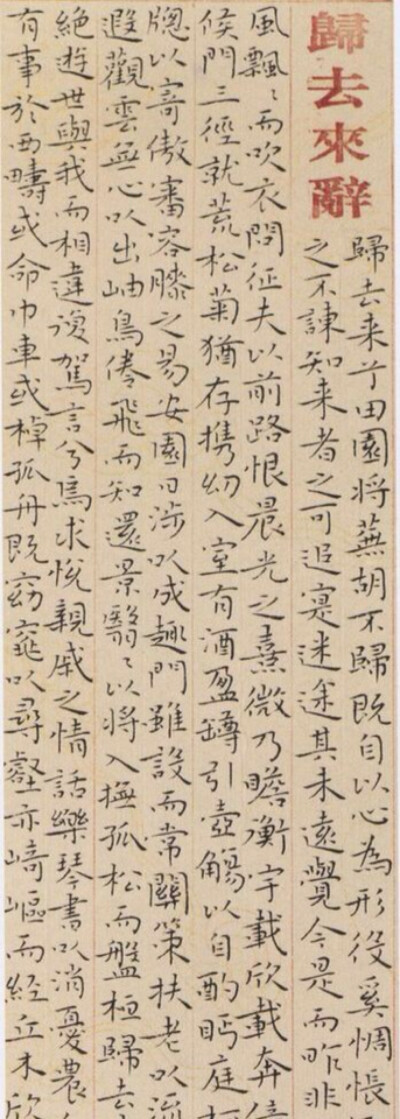 歸去來辭
歸去来兮田園将蕪胡不歸既自以心為形役奚惆悵
之不諫知来者之可追寔迷途其未遠覺今是而昨非
風飄〻而吹衣問征夫以前路恨晨光之熹微乃瞻衡宇載欣載奔
候門三徑就荒松菊猶存携幼入室有酒盈罇引壺觴以自酌眄庭
牕以寄傲審容膝之易安園日涉以成趣門雖設而常關策扶老以流
遐觀雲無心以出岫鳥倦飛而知還景翳〻以将入撫孤松而盤桓歸去
絶遊世與我而相違復駕言兮焉求悅親戚之情話樂琴書以消憂農
有事於西疇或命巾車或棹孤舟既窈窕以尋壑亦崎嶇而經丘木欣